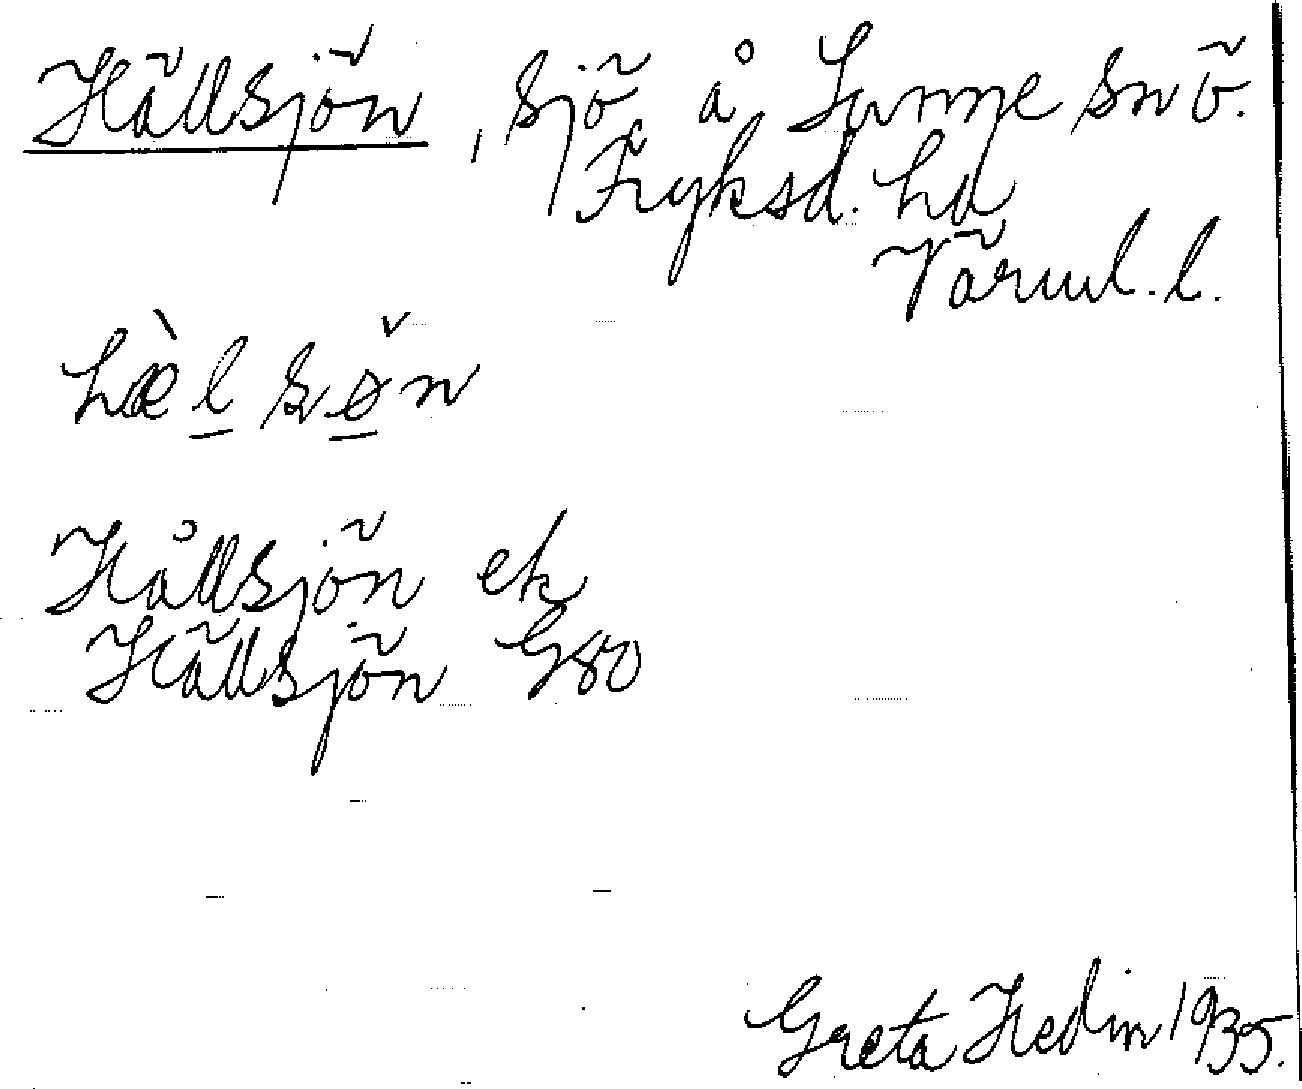 Hällsjön, sjö å Sunne sn ö.
Fryksd. hd
Värml. l.
hæ̀l sø̌n
Hållsjön ek
Hällsjön G80
Greta Hedin 1935.